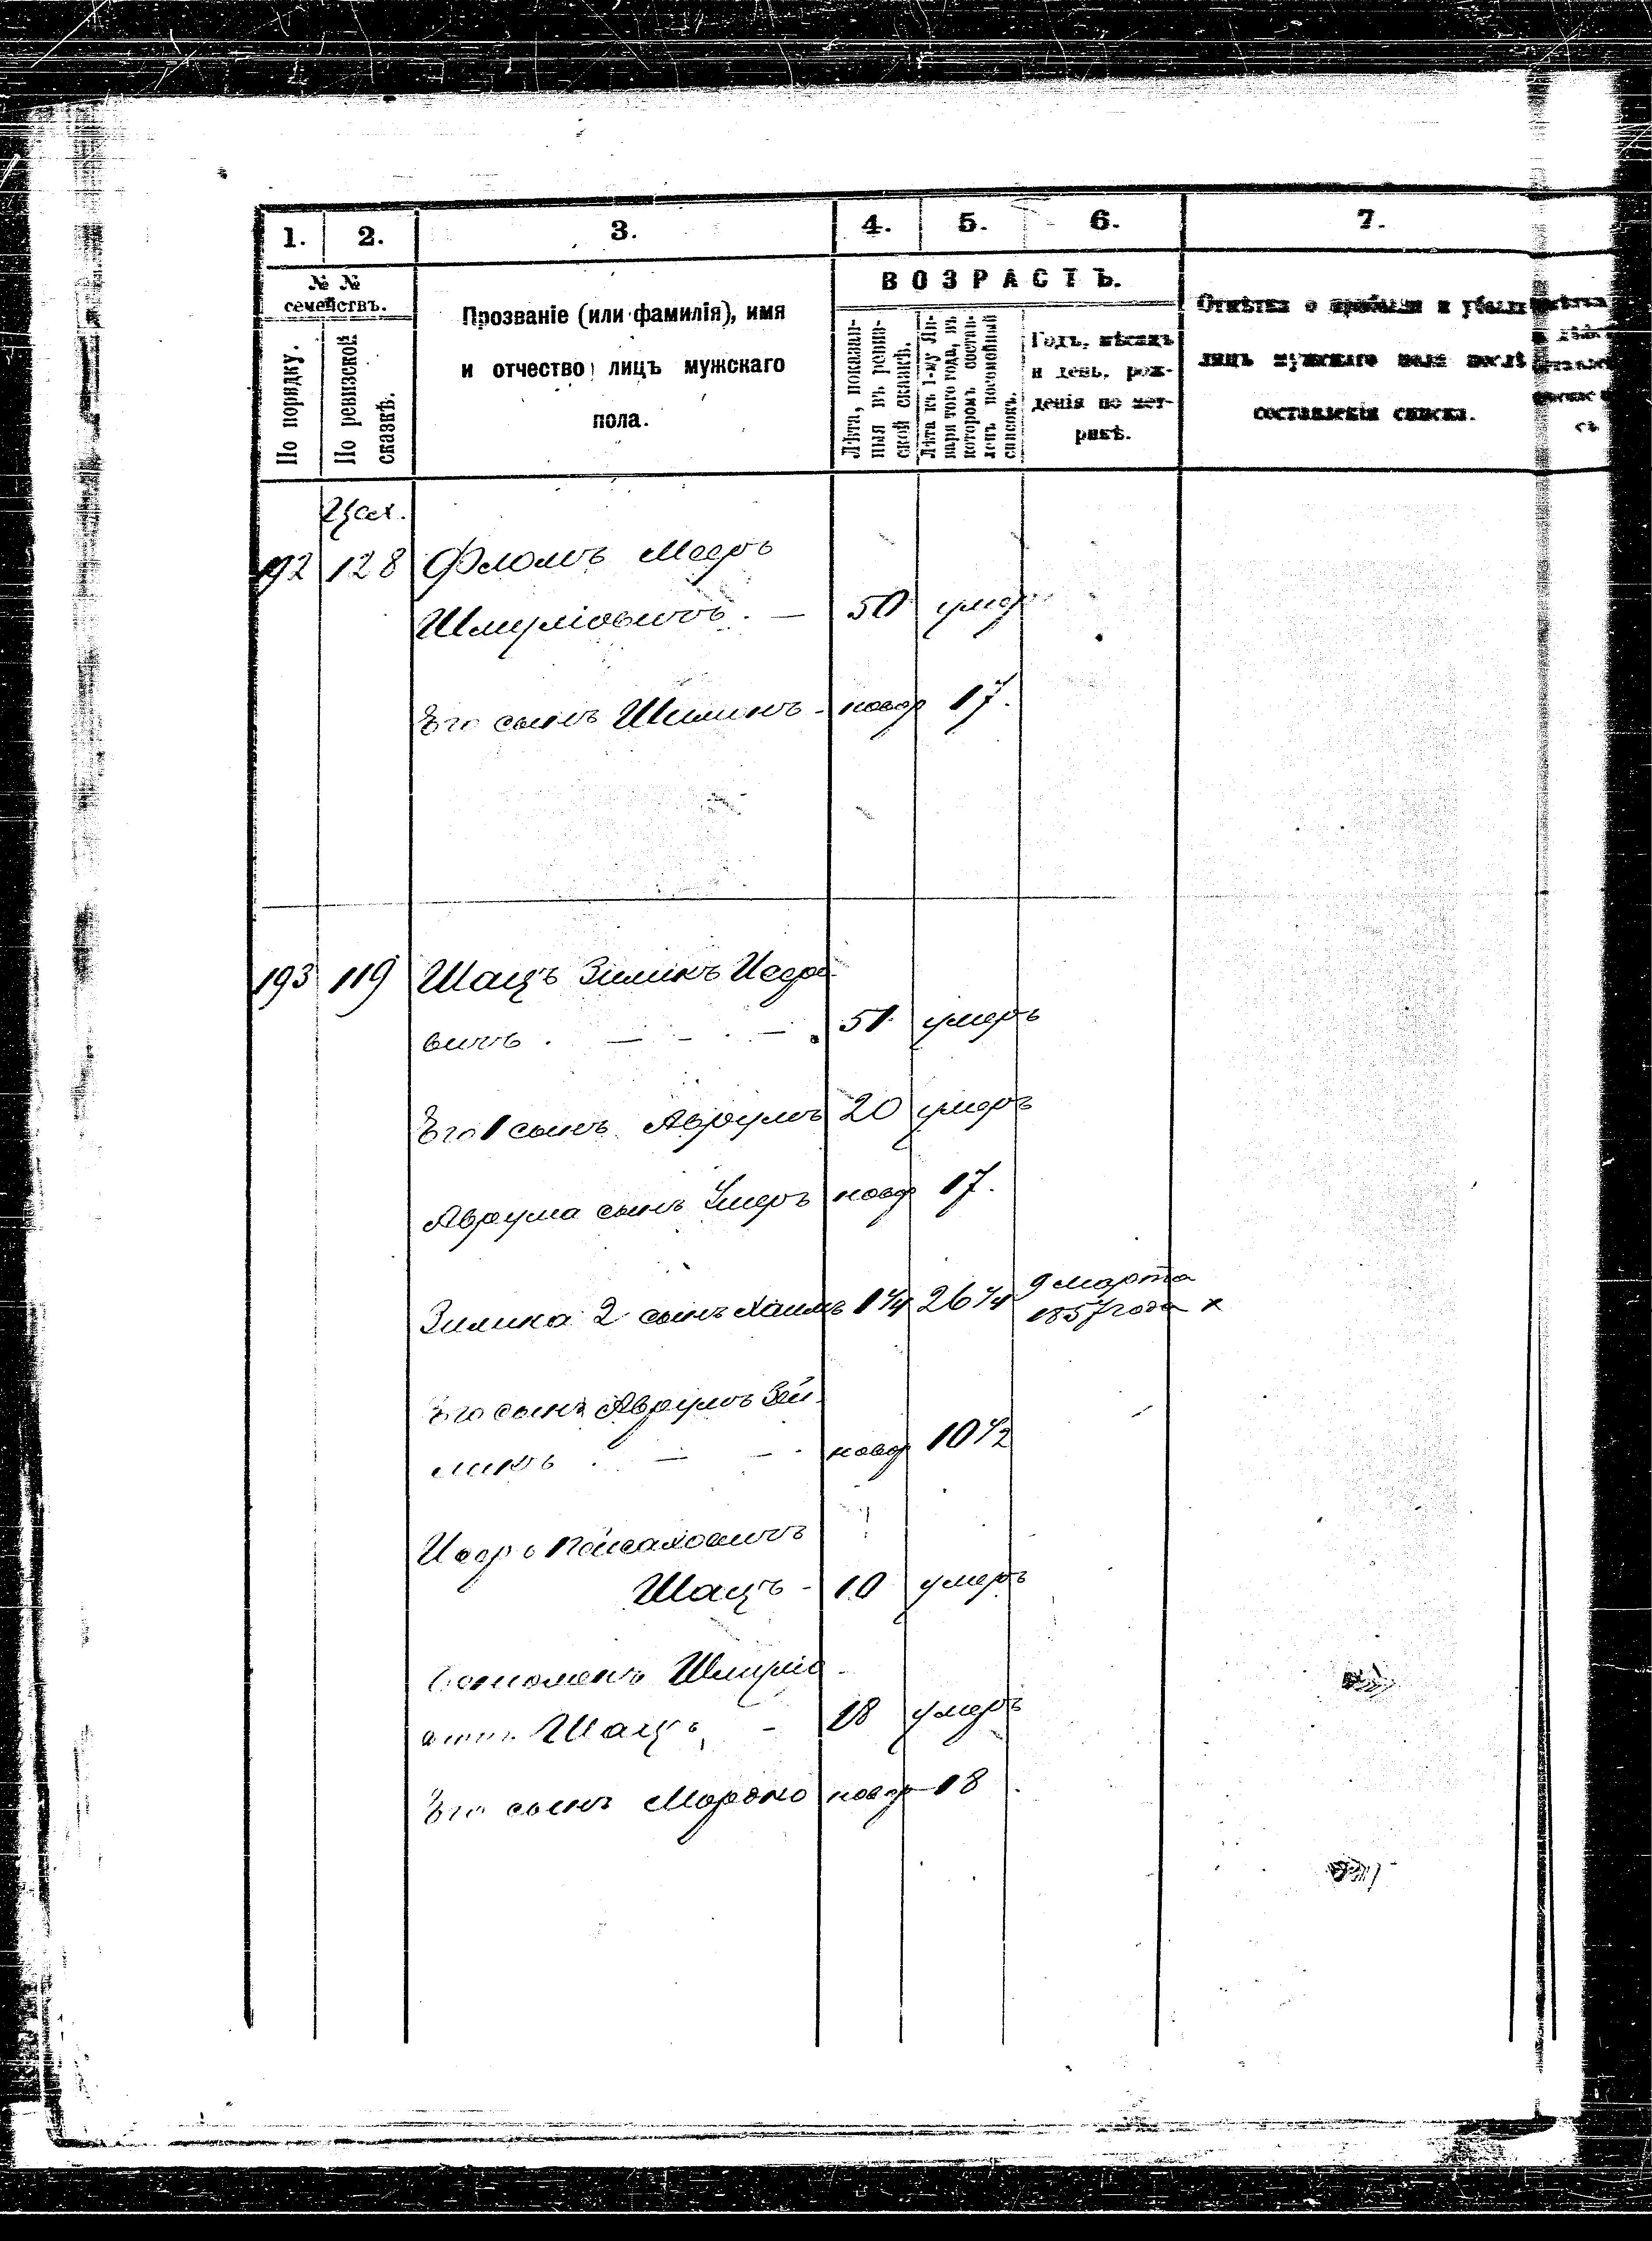 1. 2. 3. 4. 5. 6. 7.
№ №
семействъ.
По порядку.
По ревизской
сказкѣ.
Прозваніе (или фамилія), имя
и отчество лицъ мужскаго
пола.
ВОЗРАСТЪ.
Лѣта, показан-
ныя въ ревиз-
ской сказкѣ.
Лѣта къ 1-му Ян-
варя того года, въ
которомъ состав-
ленъ посемейный
списокъ.
Годъ, мѣсяцъ
и день, рож-
денія по мет-
рикѣ.
Отмѣтка о прибыли и убыли
лицъ мужскаго пола послѣ
составленія списка.
Цех.
192 128 Фломъ Меръ
Шмуліовичъ. — 50 умер
Его сынъ Шиминъ - новор 17.
193 119 Шацъ Зиликъ Исро-
вичъ . — - . — 51 умеръ
Его 1 сынъ Аврумъ 20 умеръ
Аврума сынъ новор 17.
Зилика 2 сынъ Хаимъ 1 1/4 26 1/4 9 марта
1857 года х
Его сынъ Аврумъ Зей-
ликъ . — — . новор 10 1/2
Исеръ Пейсаховичъ
Шацъ - 10 умеръ
Шмуліо-
вичъ Шацъ - 18 умеръ
Его сынъ Мордко новор 18.